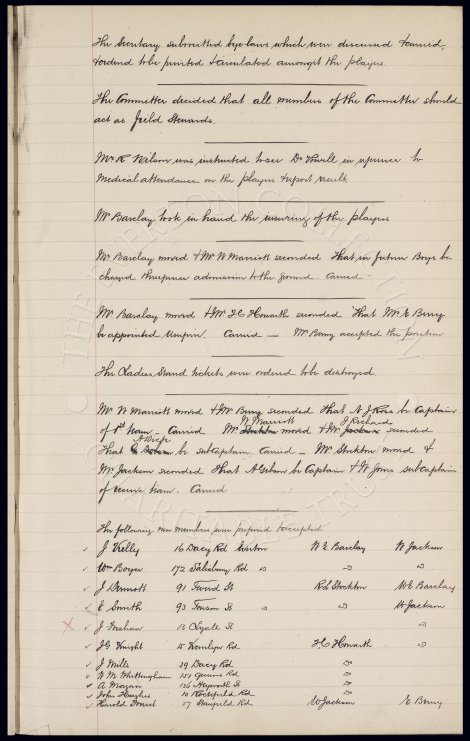 The Secretary submitted bye laws which were discussed & carried,
& orderd to be printed & circulated amongst the players.
The Committee decided that all members of the Committee should
act as Feild Stewards.
Mr R Wilson was instructed to see Dr Powell in reference to
Medical attendance on the players & report result
Mr Barclay took in hand the insuring of the players
Mr Barclay moved & Mr W Marriott seconded That in future Boys be
charged threepence admission to the ground. Carried -
Mr Barclay moved & Mr H C Howarth seconded That Mr E Berry
be appointed Umpire. Carried — Mr Berry accepted the position
The Ladies Stand tickets were ordered to be destroyed.
Mr W Marriott moved & Mr Berry seconded That N J Ross be Captain
W Marriott J Richard
of 1st team - Carried Mr Stockton moved & Mr Jackson seconded
That be sub captain. Carried — Mr Stockton moved &
Mr Jackson seconded That be Captain & W Jones subcaptain
of reserve team. Carried
The following new members were proposed & accepted
J Kelly 16 Dacy Rd Everton W E Barclay W Jackson
Wm Boyer 172 Salesbury Rd " " "
J Dermott 91 Tweed St R L Stockton W E Barclay
E Smith 93 St " " W Jackson
J 12 Lyell St "
J G Knight 15 Kemlyn Rd H C Howarth "
J Mills 29 Dacy Rd "
W M Whittingham 151 Queens Rd "
A Morgan 136 Heyworth St "
John Hughes 10 Rockfield Rd "
Harold 57 Stanfield Rd W Jackson E Berry
THE EVERTON COLLECTION
CHARITABLE TRUST